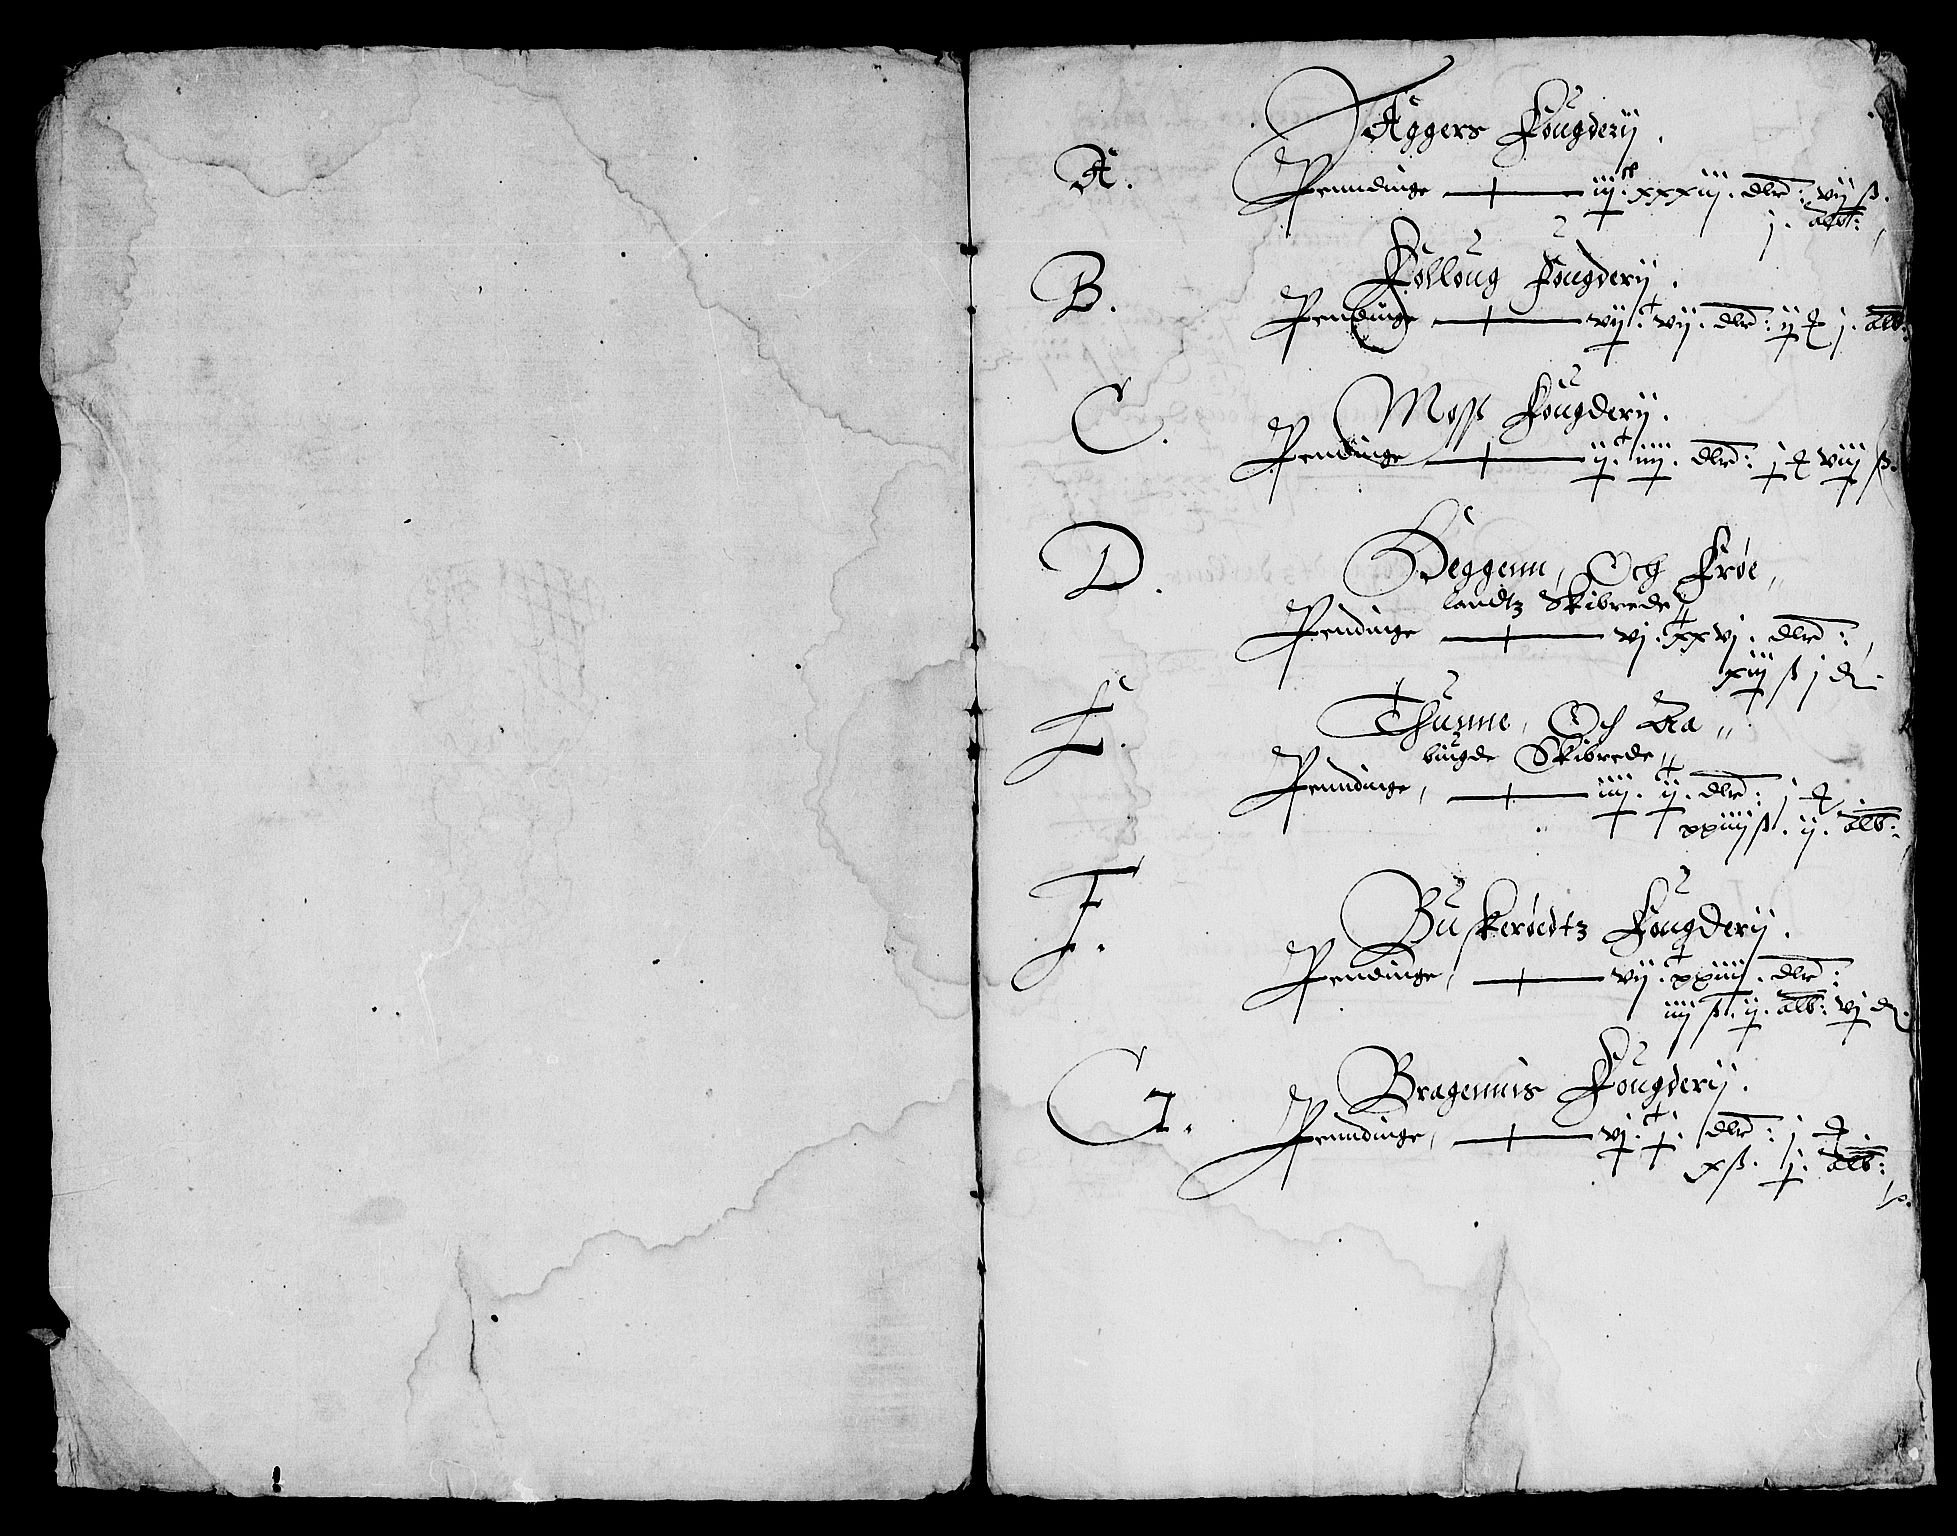 Aggers Fougderij.
A. Penndinge — iijc. xxxiij. dlr: vij ß.
j. alb:
Folloug Fougderij.
B. Pendinge — vijc. vij. dlr: ij j. alb:
Moss Fougderij.
C. Pendinge — ijc. iiij. dlr: j viij ß.
D. Heggenn, Och Frøe,,
landtz Skibrede,
Pendinge — vjc. xxvj. dlr:,
xiij ß j
E. Thunne, Och Aa,,
bŭigde Skibrede,,
Penndinge, — iiijc. ij. dlr: j
xxiiij ß. ij. alb:
F. Buskerŭdtz Fougderij.
Pendinge, — vijc. xxiiij. dlr:
iiij ß. ij. alb: vj
G. Bragernnis Fougderij.
Penndinge, — vjc. j. dlr: j
x ß. j. alb: